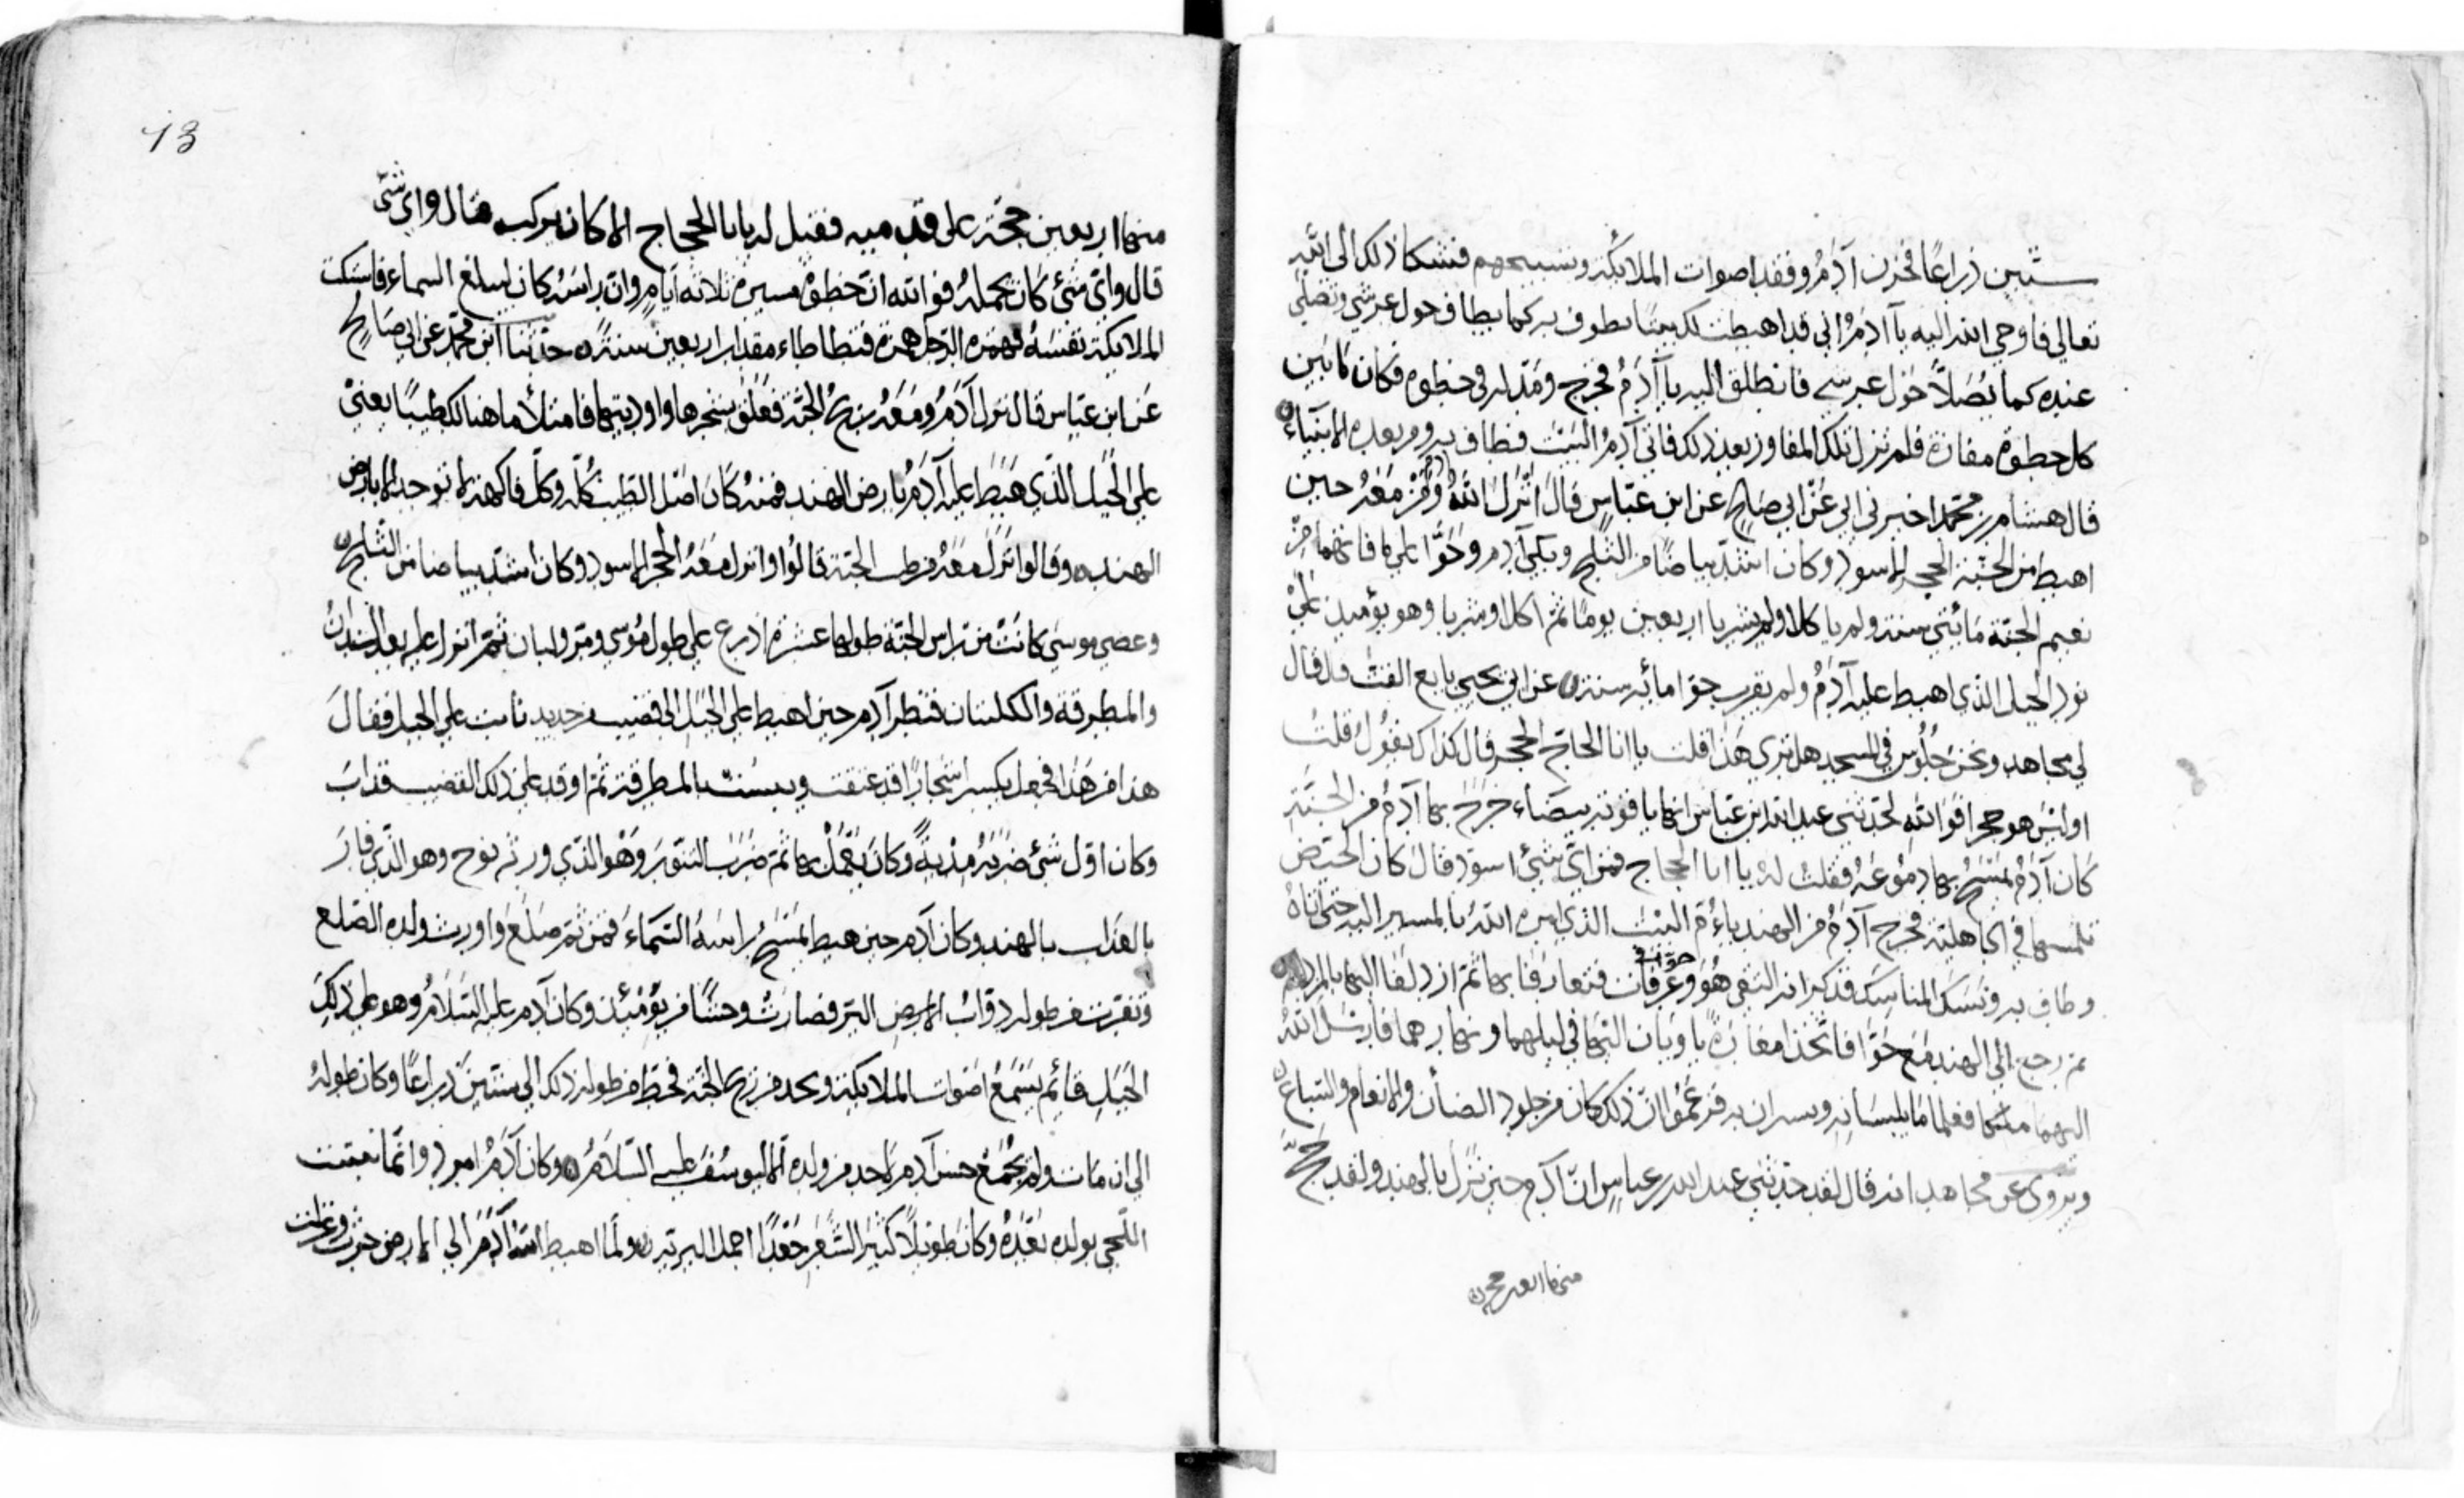 ستين ذراعًا فحزن آدَمُ وفقد اصوات الملائكة وتسبيحهم فشكا ذلك الى الله
تعالي فاوحي الله اليه يا آدَمُ اني قد اهبطت لك بيتًا يطوف به كما يطاف حول عرشي وتصلي
عنده كما يُصَلاَّ حَوْل عرشي فانطلق اليه يا آدَمُ فخرج ومَدّ له في خطوه فكان ما بَين
كل خطوة مفازة فلم تزل تلك المفاوز بعد ذلك فاتي آدمُ البَيْت فطاف به ومن بعده الانبيَآء
قال هشام بن محمد اخبرني ابي عَنْ ابي صَالح عن ابن عبّاسٍ قالَ انْزلَ اللهُ مَعَهُ حين
اهبط من الجَنّة الحجر الاسود وكان اشدّ بياضًا من الثلج وبكي آدم وحَوَّا علي ما فاتهما مِنْ
نعيم الجنّة مَائَتي سنة ولم ياكلا ولم يشربا اربعين يومًا ثم اكلا وشربا وهو يومئذ علي
نود الجبل الذي اهبط عليه آدمُ ولم يقرب حوا مائة سنة عن ابي يحيي بايع القتّ قال قال
لي مجاهد ونحن جُلُوس في المسجد هل تري هَذا قلت يا ابا الحجاج الحجر قال كذاك يقولُ قلتُ
اوليْسَ هو حجر افوَاللهِ لحَدثني عبد الله ابن عبّاس انها ياقوتة بيضَاء خرَجَ بها آدَمُ من الجَنّةِ
كَان آدَمُ يَمْسَحُ بها دمُوعَهُ فقلتُ لهُ يا ابا الحجاج فمن اي شيْ اسود قال كان الحيّض
تلمسها في الجاهلية فخرج آدَمُ من الهند باءُمّ البَيْت الذي امره اللهُ بالمسير اليه حتى اتاهُ
وطاف به ونسَك المناسِك فذكر انه التقي هُوَ وحوّا بعَرفات فتعارفا بها ثم ازدلفا اليها بالمزدلفة
ثم رجع الي الهند مَع حَوّا فاتّخذا مغارَةً ياويان اليْها في ليلهما ونهارهما فارسَل اللهُ
اليهما ملكا فعلما مَا يلبسَانِه ويستران به فزعَمُوا انّ ذلك كان من جلود الضأن والانعام والسّباع
ويُرْوَى عن مجاهد انه قال لقد حدّثني عبد الله بن عباسٍ انّ آدم حين نزَل بالهند ولقد حَجَّ
منها اربعين حجة
13
منها اربعين حجّة على قدميه فقيل له يا ابا الحجاج الا كان يركب فقال واي شئ
قال واي شيْ كان يحملهُ فوالله انّ خطوهُ مسيرة ثلاثة ايّامٍ وان راسَهُ كان ليبلغ السماءَ فاشتكت
الملائكة نفسَهُ فهمزه الرّحمن همزة فتطاطاء مقدار اربعين سنة حدّثنا ابن محمّد عن ابي صَالحٍ
عَن ابن عبّاس قال نزل آدَمُ ومَعَهُ ريحُ الجنّة فعَلق بشجرها واوديتها فامتلأ ما هنالك طيبًا يعني
علي الجَبل الذّي هَبَط عليه آدَمُ بارض الهند فمنه كَانَ اصْل الطّيب كُلّه وكلّ فاكهة لا توجد الا بارض
الهند وقالوا نزَلَ مَعَهُ من طيب الجنّة قالوا وانزل مَعَهُ الحجر الاسود وكان اشدّ بياضا من الثّلج
وعصي موسَي كانَتْ من آس الجنّة طولها عشرَة اذرع علي طول مُوسي ومرّ ولبان ثمّ انزل عليه بعد السندانُ
والمطرقة والكلبتان فنظر آدم حين اهبط علي الجَبل الى قضيب من حديد نابت علي الجبل فقالَ
هذا من هَذا فجعل يكسر اشجارًا قد عتقت ويبسَتْ بالمطرقة ثم اوقد علي ذلك القضيب فذابَ
وكان اوّل شيْ ضرَبَهُ مِدْيَةً وكانَ يَعْمَلُ بها ثمّ ضرَبَ التنوّرَ وَهْوَ الذّي ورثه نوح وهو الذّي فارَ
بالعَذاب بالهند وكان آدم حين هبط يَمْسَحُ راسَهُ السّمَاءَ فمن ثم صَلعَ واورث ولده الصّلع
ونفرت من طوله دوَابُ الارض البَرّ فصارَتْ وحشًا من يومَئِذٍ وكان آدم عليه السَلامُ وهو علي ذلكَ
الجَبَلِ قائم يَسْمَعُ اصْوات الملائكة ويجد من ريح الجنّة فحطّ من طوله ذلك الي ستّين ذراعًا وكان طولهُ
الي ان مات ولم يُجْمَعْ حسن آدم لاحدٍ من ولده الا ليوسُفَ عليه السّلامُ وكان آدَمُ امرد وانّما نبتت
اللّحي لولده بَعْدَهُ وكان طويلاً كثيرَ الشّعَرِ جَعْدًا اجمل البرية ولَمّا اهبط اللهُ آدَمَ الي الارض حرث وغزلت